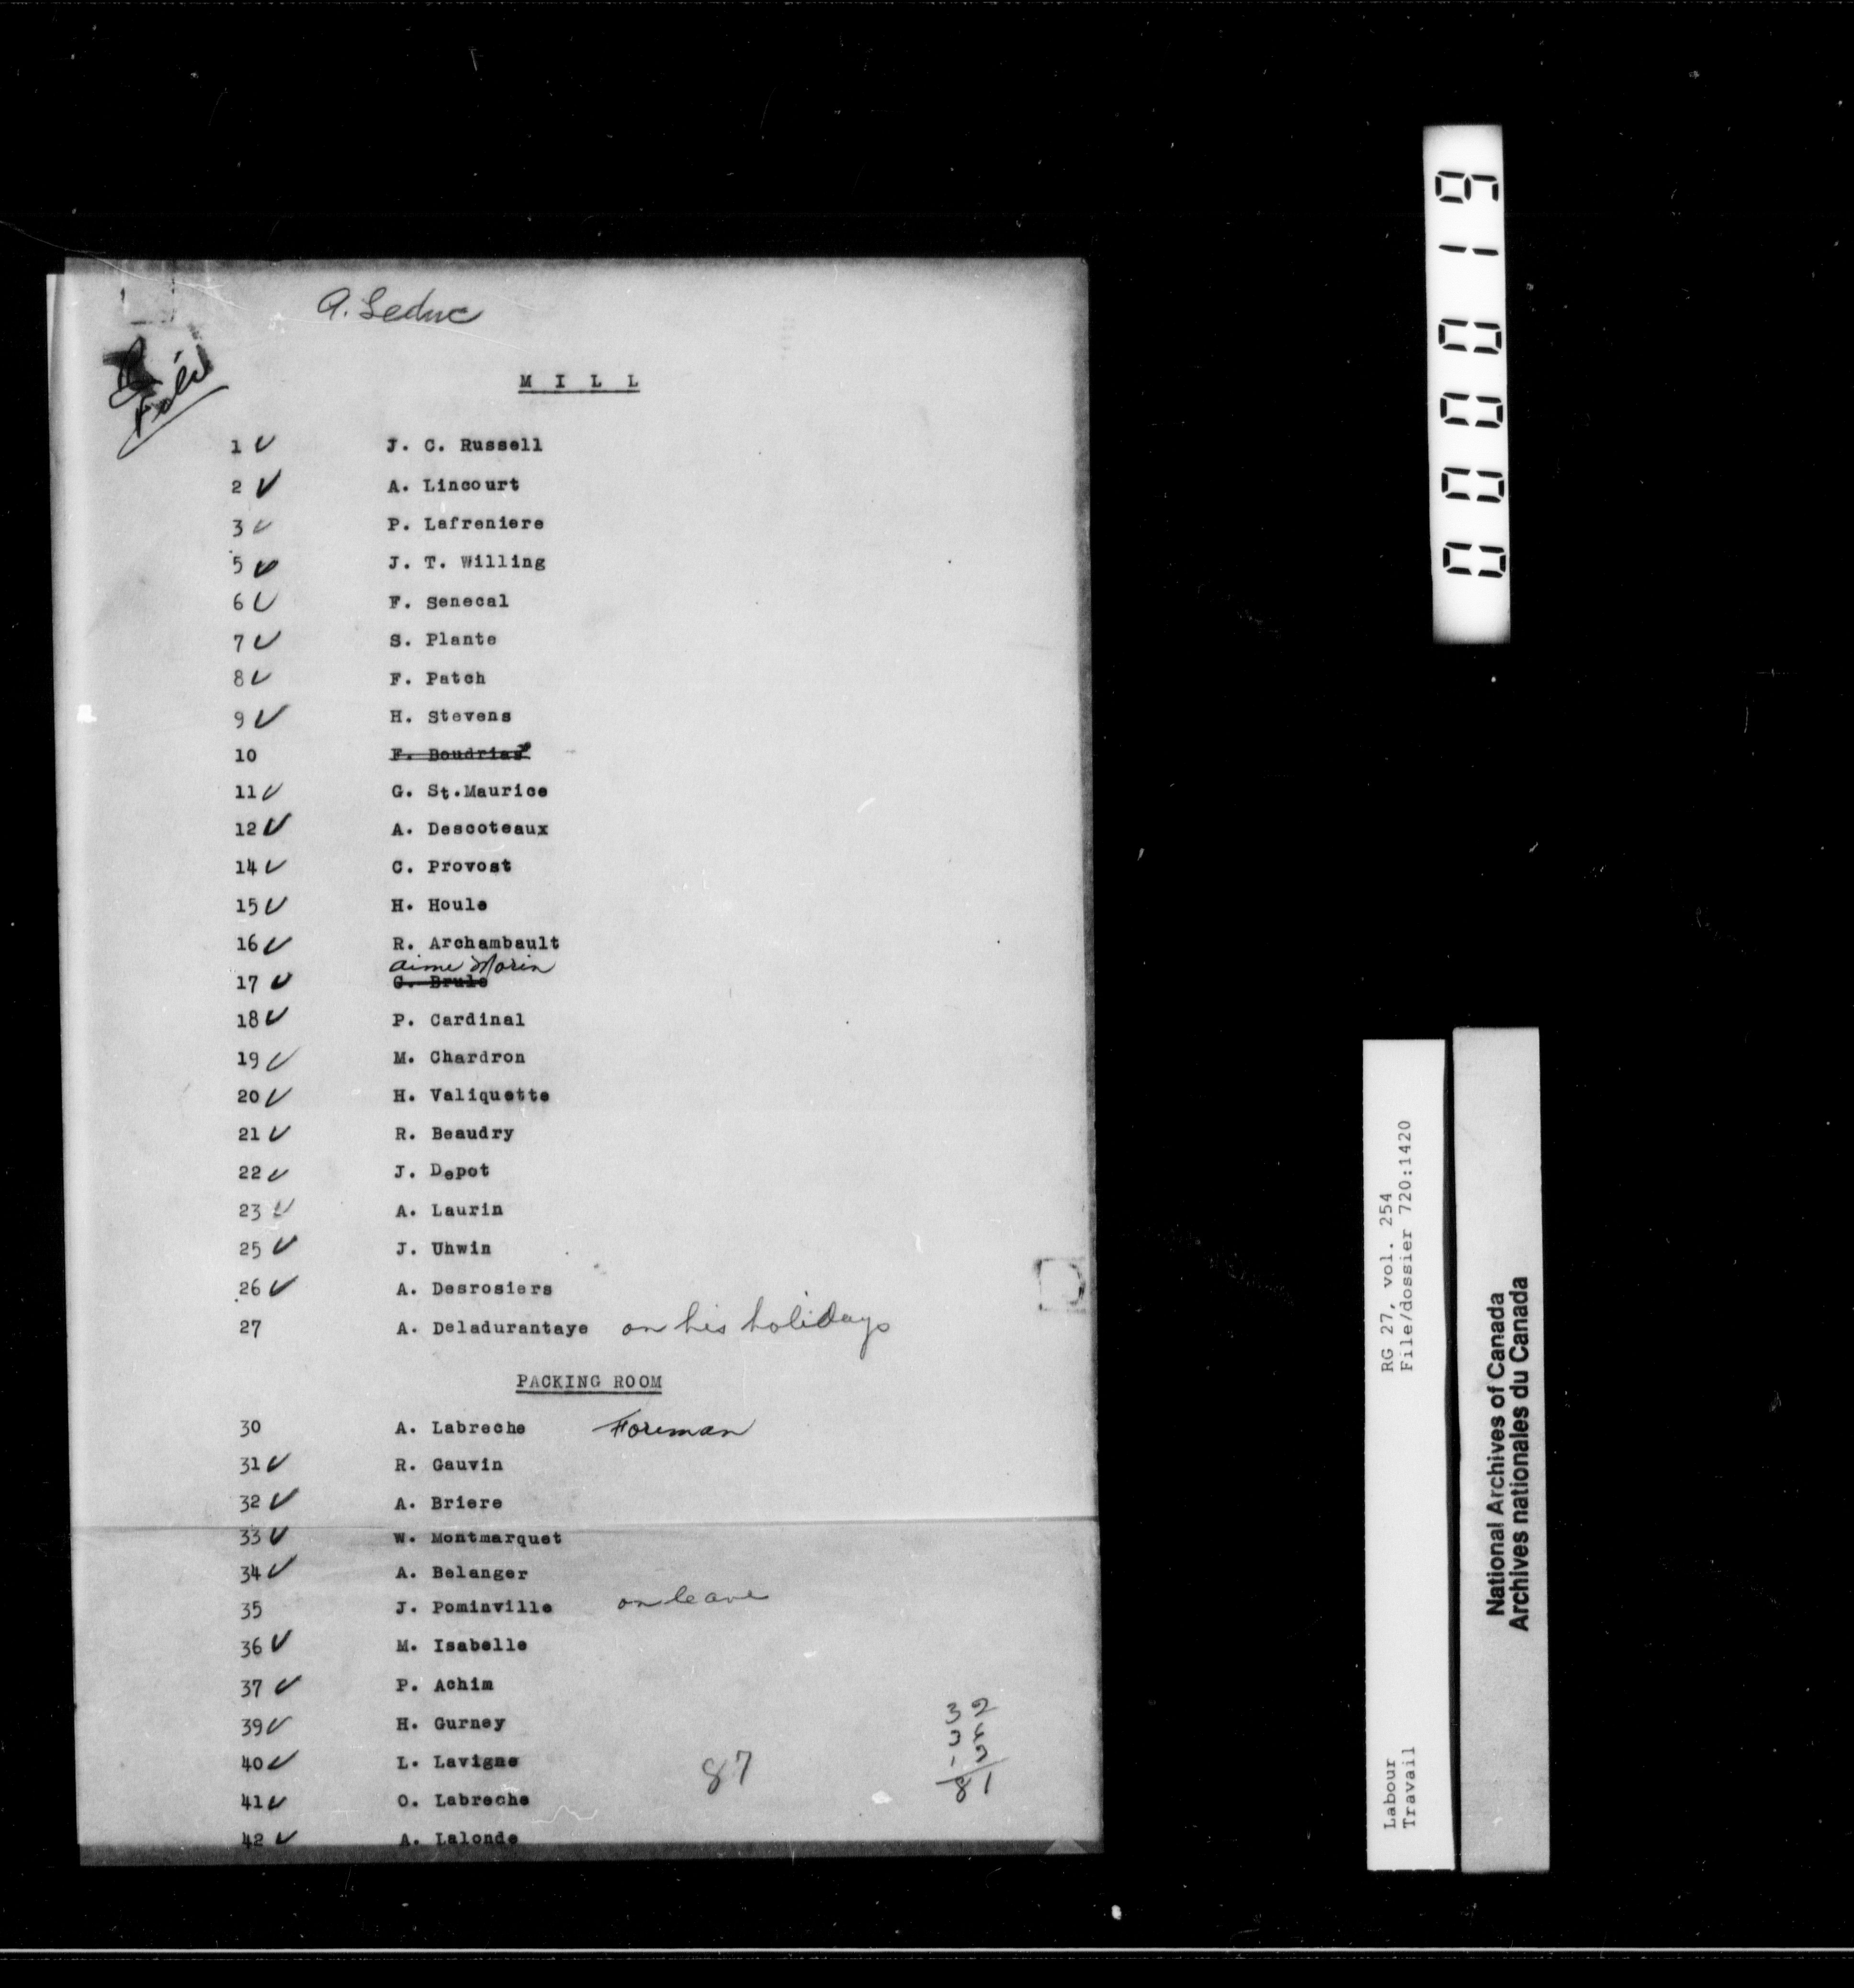 A. Leduc
File
M I L L
1 ✓ J. C. Russell
2 ✓ A. Lincourt
3 ✓ P. Lafreniere
5 ✓ J. T. Willing
6 ✓ F. Senecal
7 ✓ S. Plante
8 ✓ F. Patch
9 ✓ H. Stevens
10 F. Boudrias
11 ✓ G. St.Maurice
12 ✓ A. Descoteaux
14 ✓ C. Provost
15 ✓ H. Houle
16 ✓ R. Archambault
Aime Morin
17 ✓ G. Brule
18 ✓ P. Cardinal
19 ✓ M. Chardron
20 ✓ H. Valiquette
21 ✓ R. Beaudry
22 ✓ J. Depot
23 ✓ A. Laurin
25 ✓ J. Uhwin
26 ✓ A. Desrosiers
27 A. Deladurantaye on his holidays
PACKING ROOM
30 A. Labreche Foreman
31 ✓ R. Gauvin
32 ✓ A. Briere
33 ✓ W. Montmarquet
34 ✓ A. Belanger
35 J. Pominville on leave
36 ✓ M. Isabelle
37 ✓ P. Achim
39 ✓ H. Gurney
40 ✓ L. Lavigne
41 ✓ O. Labreche
42 ✓ A. Lalonde
87
32
81
000019
RG 27, vol. 254
File/dossier 720:1420
Labour
Travail
National Archives of Canada
Archives nationales du Canada